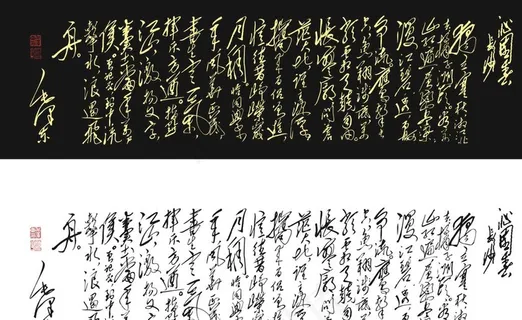 沁園春
长沙
独立寒秋湘江北
去橘子洲头看万
山红遍层林尽染
漫江碧透百舸
争流鹰击长空
鱼翔浅底万类霜天
竞自由
怅寥廓问苍
茫大地谁主沉浮
携来百侣曾游
忆往昔峥嵘岁
月稠恰同学少
年风华正茂
书生意气
挥斥方遒指点
江山激扬文字
粪土当年万户
侯曾记否到中流
击水浪遏飞
舟
毛泽东
沁園春
长沙
独立寒秋湘江北
去橘子洲头看万
山红遍层林尽染
漫江碧透百舸
争流鹰击长空
鱼翔浅底万类霜天
竞自由
怅寥廓问苍
茫大地谁主沉浮
携来百侣曾游
忆往昔峥嵘岁
月稠恰同学少
年风华正茂
书生意气
挥斥方遒指点
江山激扬文字
粪土当年万户
侯曾记否到中流
击水浪遏飞
舟
毛泽东